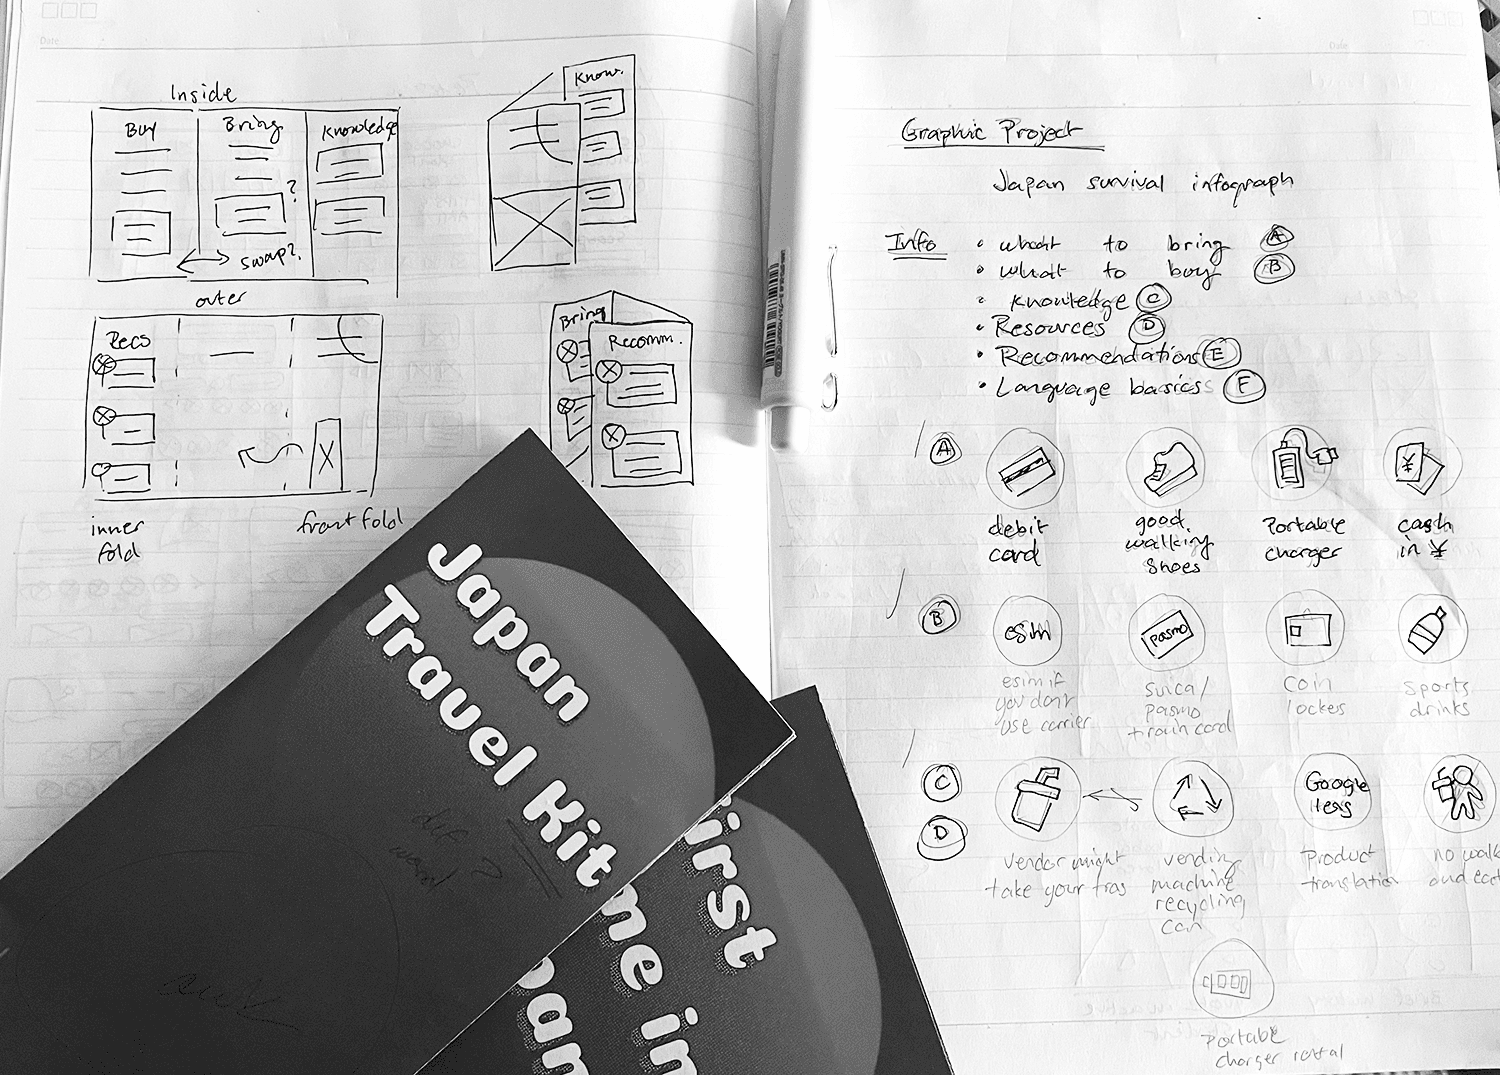 Date
Inside
Buy
Bring
Knowledge
?
swap?
outer
Recs
inner
fold
front fold
Know.
Bring
Recomm.
Japan
Travel Kit
dif
word ?
First
me in
pan
Date
Graphic Project
Japan survival infograph
Info
• what to bring A
• what to buy B
• Knowledge C
• Resources D
• Recommendations E
• Language basics F
A
¥
debit
card
good
walking
shoes
Portable
charger
cash
in ¥
B
esim
pasmo
esim if
you don't
use carrier
suica/
pasmo
train card
Coin
lockers
Sports
drinks
C
D
Google
lens
vendor might
take your tras
vending
machine
recycling
can
Product
translation
no walk
and eat
Portable
charger rental